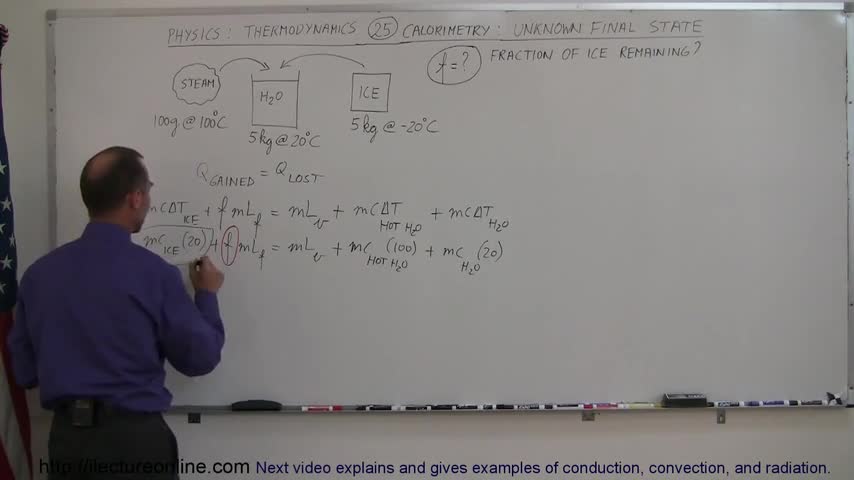 PHYSICS: THERMODYNAMICS 25 CALORIMETRY: UNKNOWN FINAL STATE
f=? FRACTION OF ICE REMAINING?
STEAM
H₂O
ICE
100g @ 100°C
5kg @ 20°C
5kg @ -20°C
Q GAINED = Q LOST
mCΔT ICE + f mL f = mL v + mCΔT HOT H₂O + mCΔT H₂O
mC ICE (20) + f mL f = mL v + mC HOT H₂O (100) + mC H₂O (20)
http://ilectureonline.com Next video explains and gives examples of conduction, convection, and radiation.